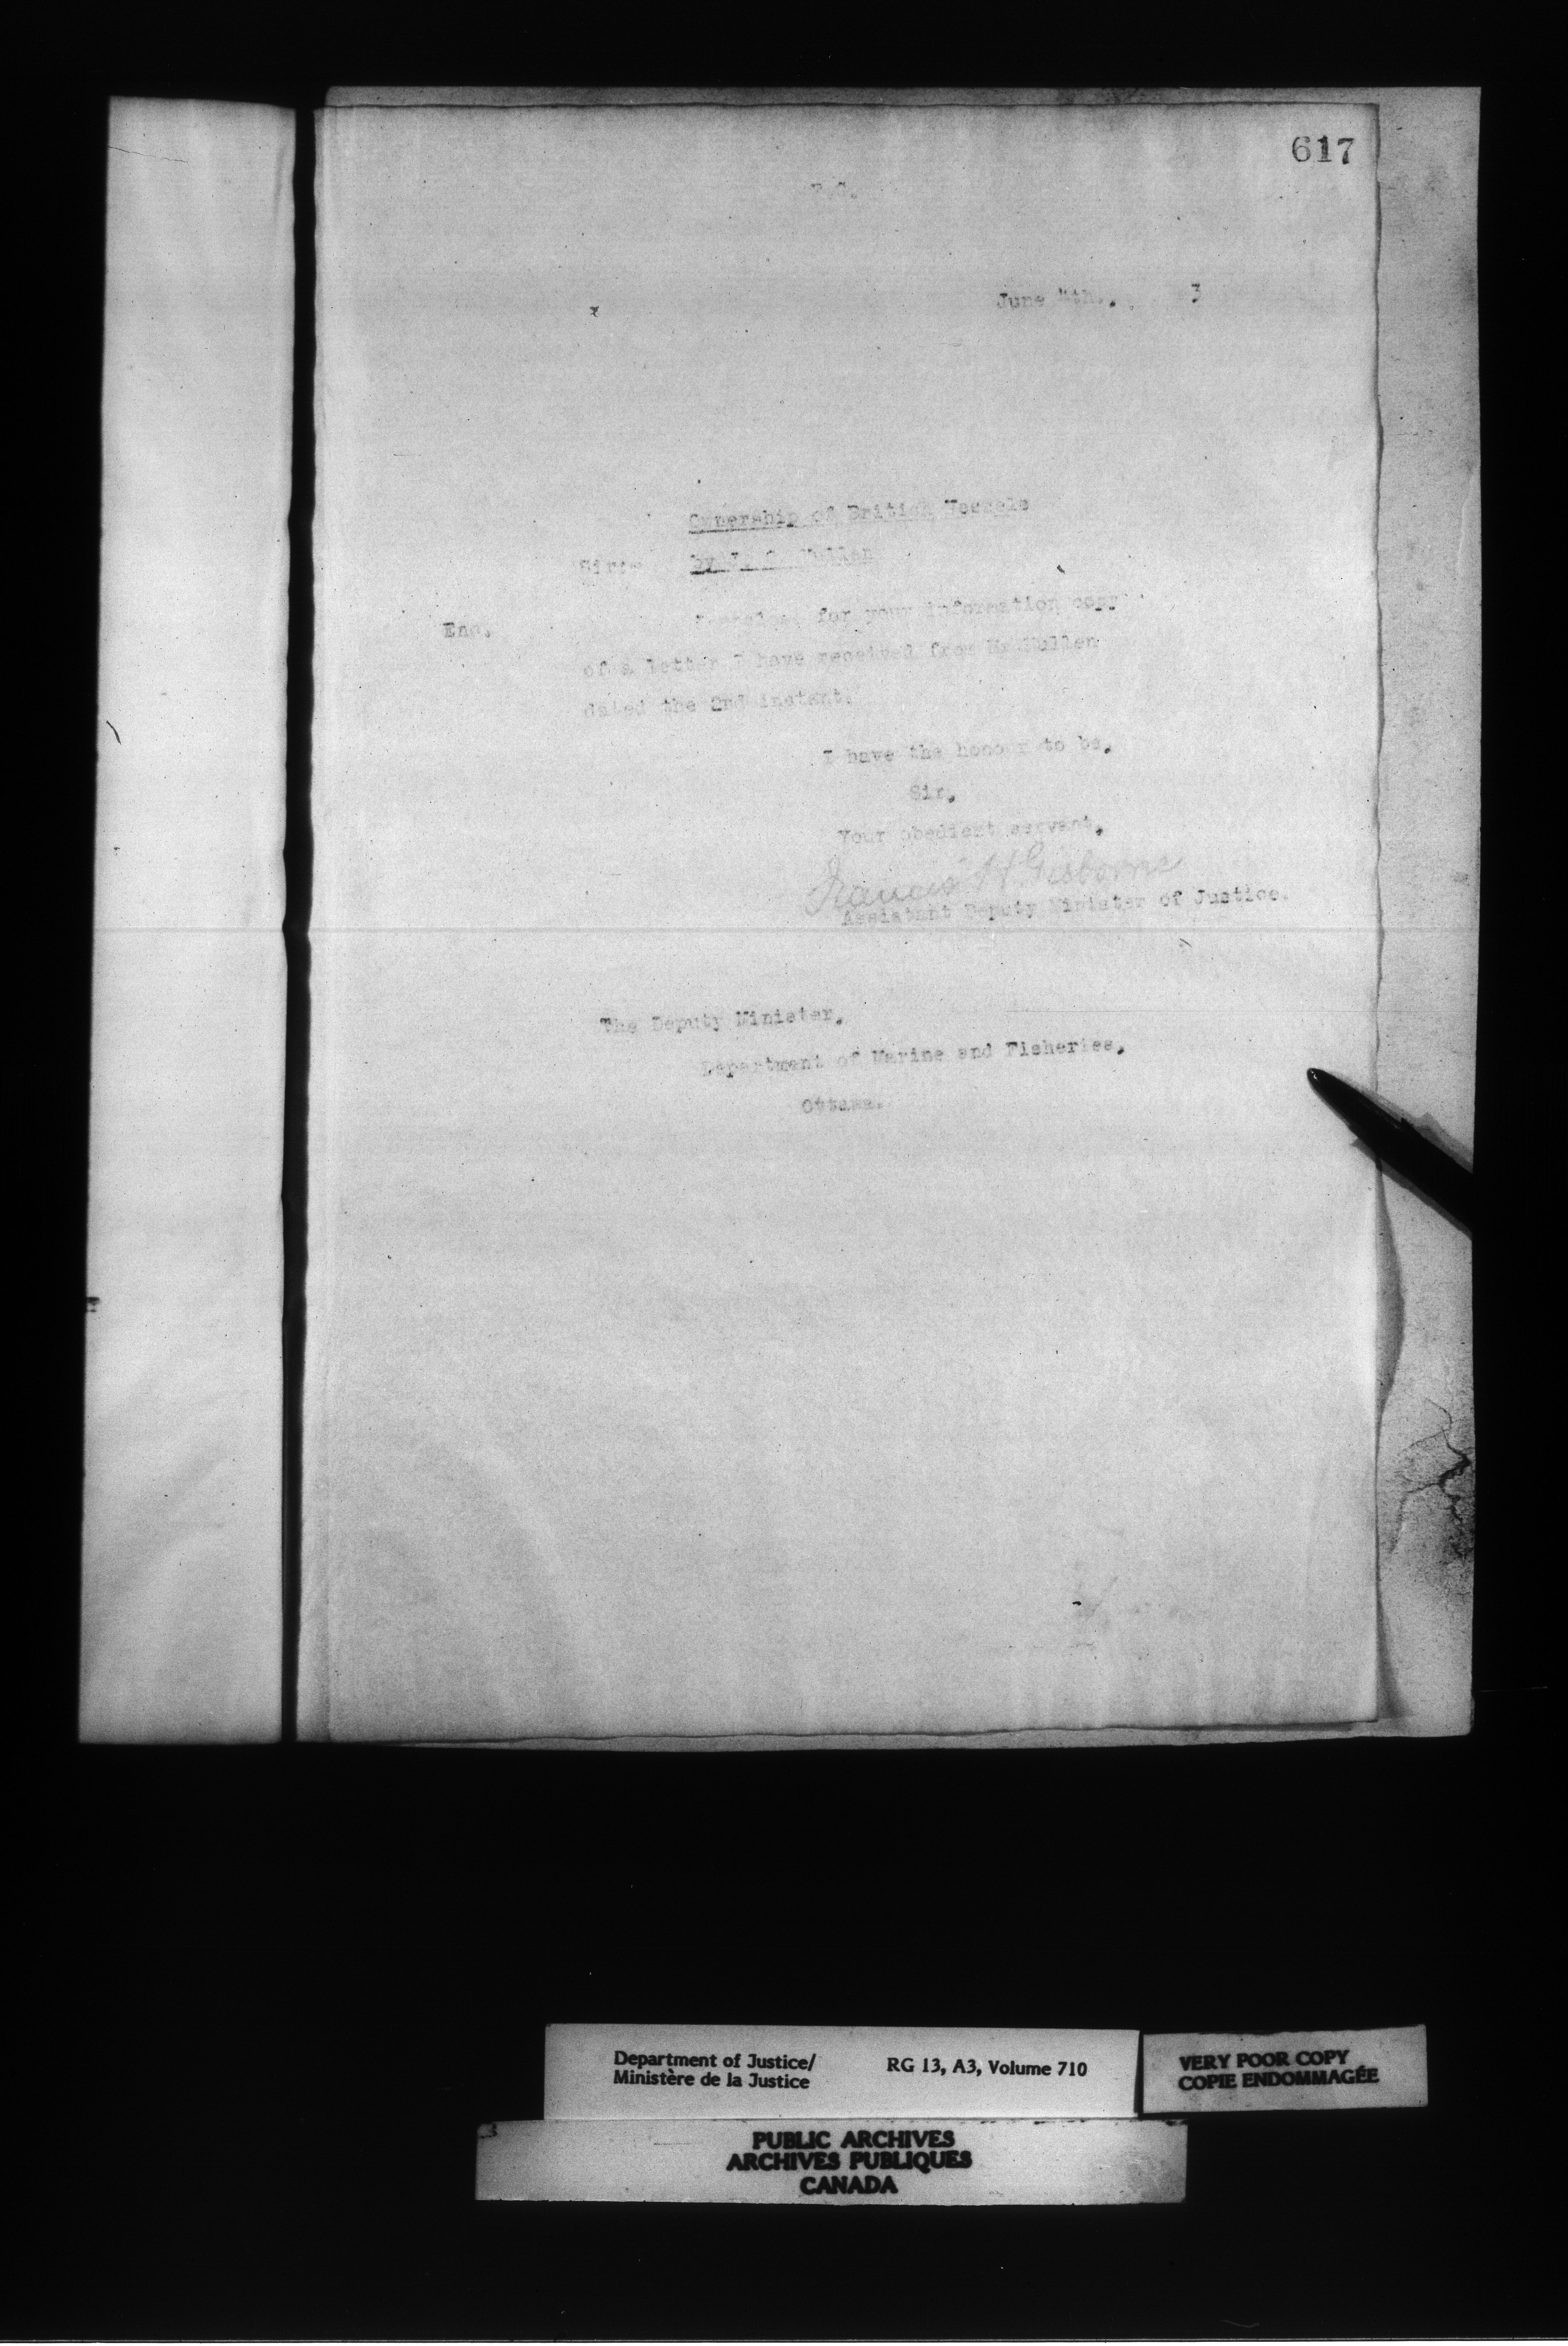 617
June 4th., 3
Ownership of British Vessels
Sir:- by Mullen
Enc. for your information copy
of a letter I have received from Mullen
dated the 2nd instant.
I have the honour to be,
Sir,
Your obedient servant,
Francis H Gisborne
Assistant Deputy Minister of Justice.
The Deputy Minister,
Department of Marine and Fisheries,
Ottawa.
Department of Justice/ RG 13, A3, Volume 710
Ministère de la Justice
VERY POOR COPY
COPIE ENDOMMAGÉE
PUBLIC ARCHIVES
ARCHIVES PUBLIQUES
CANADA